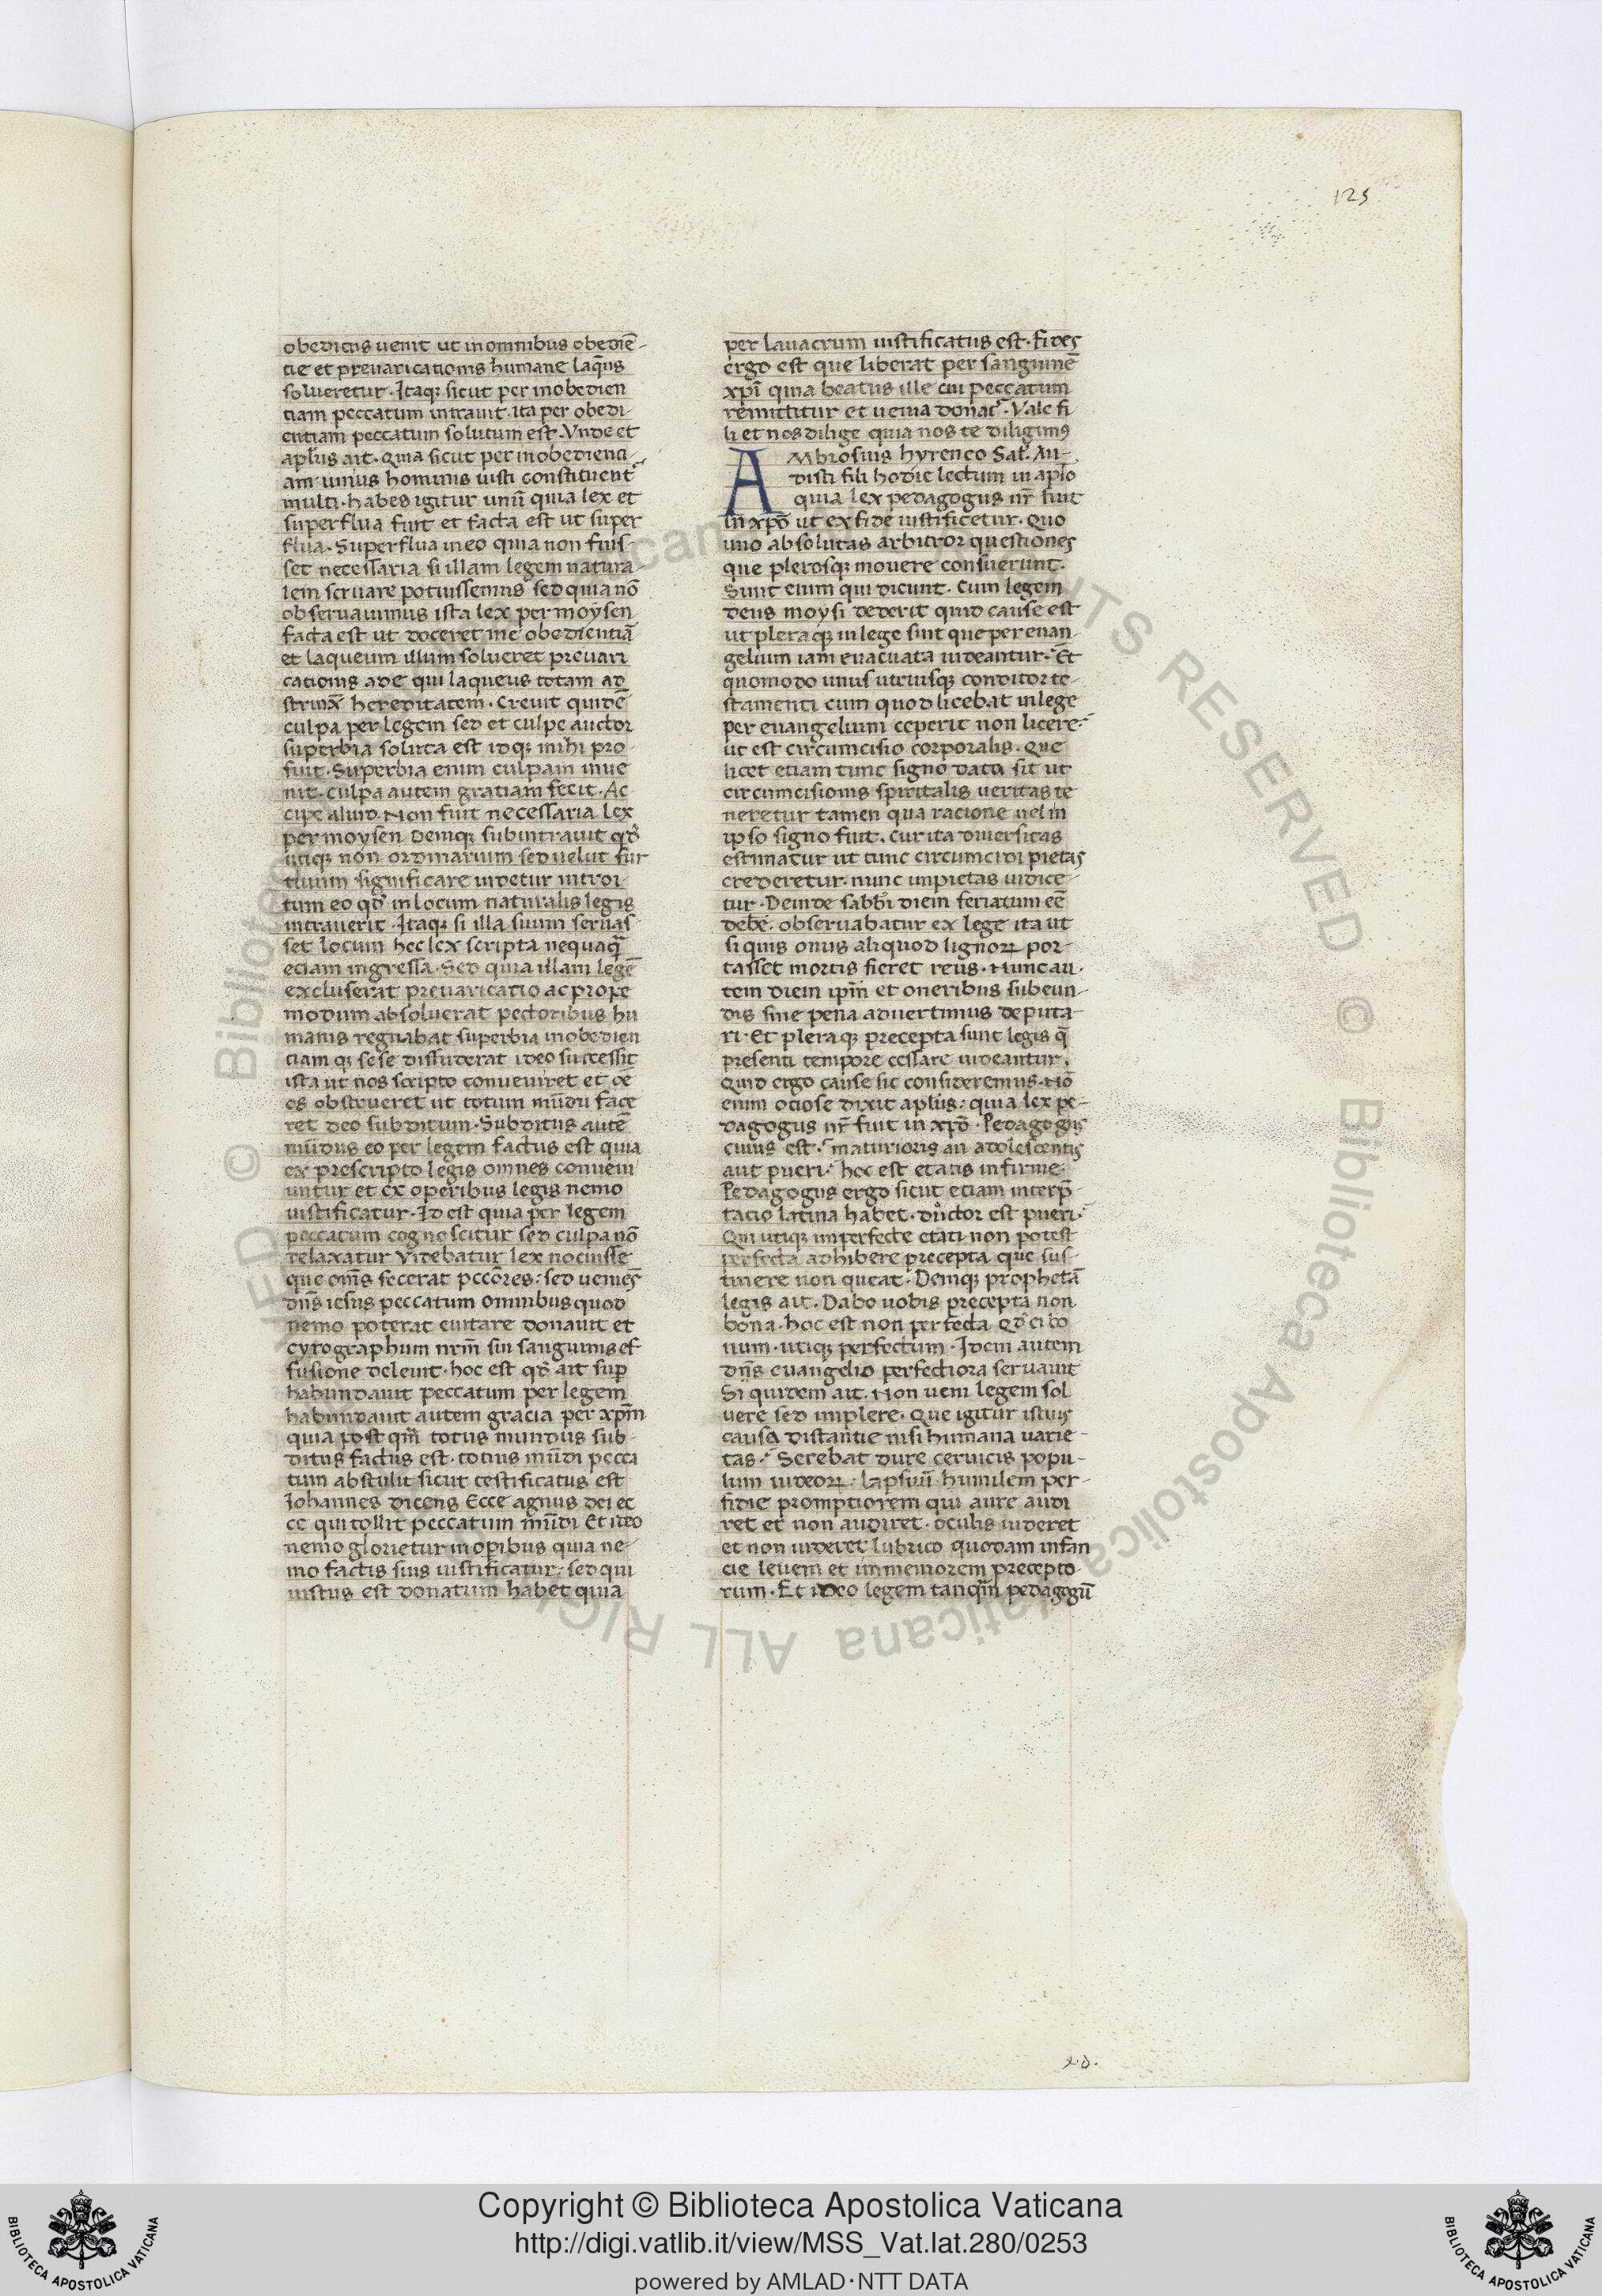 125
obediens uenit ut in omnibus obediē-
tie et preuaricationis humane laq̄us
solueretur. Itaq; sicut per inobedien
tiam peccatum intrauit. ita per obedi-
entiam peccatum solutum est. Vnde et
apl̄us ait. Quia sicut per inobedienti-
am unius hominis iusti constituent᷑
multi. habes igitur unū quia lex et
superflua fuit et facta est ut super
flua. Superflua in eo quia non fuis-
set necessaria si illam legem natura-
lem seruare potuissemus sed quia nō
obseruauimus ista lex per moysen
facta est ut doceret me obedientiā
et laqueum illum solueret preuari
cationis ade qui laqueus totam ad
strinx̄ hereditatem. Creuit quidē
culpa per legem sed et culpe auctor
superbia soluta est idq; mihi pro-
fuit. Superbia enim culpam inue
nit. culpa autem gratiam fecit. Ac
cipe aliud. Non fuit necessaria lex
per moysen Deniq; subintrauit qđ
utiq; non ordinarium sed uelut fur
tiuum significare uidetur introi-
tum eo qđ in locum naturalis legis
intrauerit. Itaq; si illa suum seruas
set locum hec lex scripta nequaq̄
etiam ingressa. Sed quia illam legē
excluserat preuaricatio ac prope
modum absoluerat pectoribus hu
manis regnabat superbia inobedien
tiamq; sese diffuderat ideo successit
ista ut nos scripto conueniret et oē
os obstrueret ut totum mūdū face
ret deo subditum. Subditus autē
mūdus eo per legem factus est quia
ex prescripto legis omnes conueni
untur et ex operibus legis nemo
iustificatur. Id est quia per legem
peccatum cognoscitur sed culpa nō
relaxatur Videbatur lex nocuisse
que om̄s fecerat pccōres: sed ueniēs
dn̄s iesus peccatum omnibus quod
nemo poterat euitare donauit et
cyrographum nrm̄ sui sanguinis ef
fusione deleuit. hoc est qđ ait sup̱
habundauit peccatum per legem
habundauit autem gracia per xpm̄
quia post qm̄ totus mundus sub-
ditus factus est. totius mūdi pecca
tum abstulit sicut testificatus est
Iohannes dicens Ecce agnus dei ec
ce qui tollit peccatum mūdi Et ideo
nemo glorietur in op̱ibus quia ne-
mo factis suis iustificatur: sed qui
iustus est donatum habet quia
per lauacrum iustificatus est. fides
ergo est que liberat per sanguinē
xpī quia beatus ille cui peccatum
remittitur et uenia donat᷑. Vale fi
li et nos dilige quia nos te diligimꝰ
AMbrosius hyreneo Sal̄. Au-
disti fili hodie lectum in apl̄o
quia lex pedagogus nr̄ fuit
in xpō ut ex fide iustificetur. Quo
uno absolutas arbitror questiones
que plerosq; mouere consuerunt.
Sunt enim qui dicunt. Cum legem
deus moysi dederit quid cause est
ut pleraq; in lege sint que per euan-
gelium iam euacuata uideantur. Et
quomodo unus utriusq; conditor te-
stamenti cum quod licebat in lege
per euangelium ceperit non licere.
ut est circumcisio corporalis. Que
licet etiam tunc signo data sit ut
circumcisionis spiritalis ueritas te
neretur tamen qua racione uel in
ipso signo fuit. cur ita diuersitas
estimatur ut tunc circumcidi pietas
crederetur. nunc impietas iudice-
tur. Deinde sabb̄i diem feriatum eē
deb̄e. obseruabatur ex lege ita ut
si quis onus aliquod lignoꝝ por-
tasset mortis fieret reus. Nunc au-
tem diem ipm̄ et oneribus subeun-
dis sine pena aduertimus deputa-
ri. Et pleraq; precepta sunt legis q̄
presenti tempore cessare uideantur.
Quid ergo cause sit consideremus. Nō
enim ociose dixit apl̄us: quia lex pe-
dagogus nr̄ fuit in xpō. Pedagogus
cuius est. maturioris an adolescentis
aut pueri. hoc est etatis infirme.
Pedagogus ergo sicut etiam interp̄-
tacio latina habet. ductor est pueri.
Qui utiq; imperfecte etati non potest
perfecta adhibere precepta que sus-
tinere non queat. Deniq; prophetā
legis ait. Dabo uobis precepta non
bona. hoc est non perfecta. Qđ ei bo
num. utiq; perfectum. Idem autem
dn̄s euangelio perfectiora seruauit
Si quidem ait. Non ueni legem sol
uere sed implere. Que igitur istius
causa distantie nisi humana uarie-
tas. Screbat dure ceruicis popu-
lum iudeoꝝ. lapsuū humilem per-
fidie promptiorem qui aure audi
ret et non audiret. oculis uideret
et non uideret lubrico quodam infan
cie leuem et immemorem precepto-
rum. Et ideo legem tanqm̄ pedagogū
Copyright © Biblioteca Apostolica Vaticana
http://digi.vatlib.it/view/MSS_Vat.lat.280/0253
powered by AMLAD·NTT DATA
BIBLIOTECA APOSTOLICA VATICANA
BIBLIOTECA APOSTOLICA VATICANA
© Biblioteca Apostolica Vaticana ALL RIGHTS RESERVED
© Biblioteca Apostolica Vaticana ALL RIGHTS RESERVED